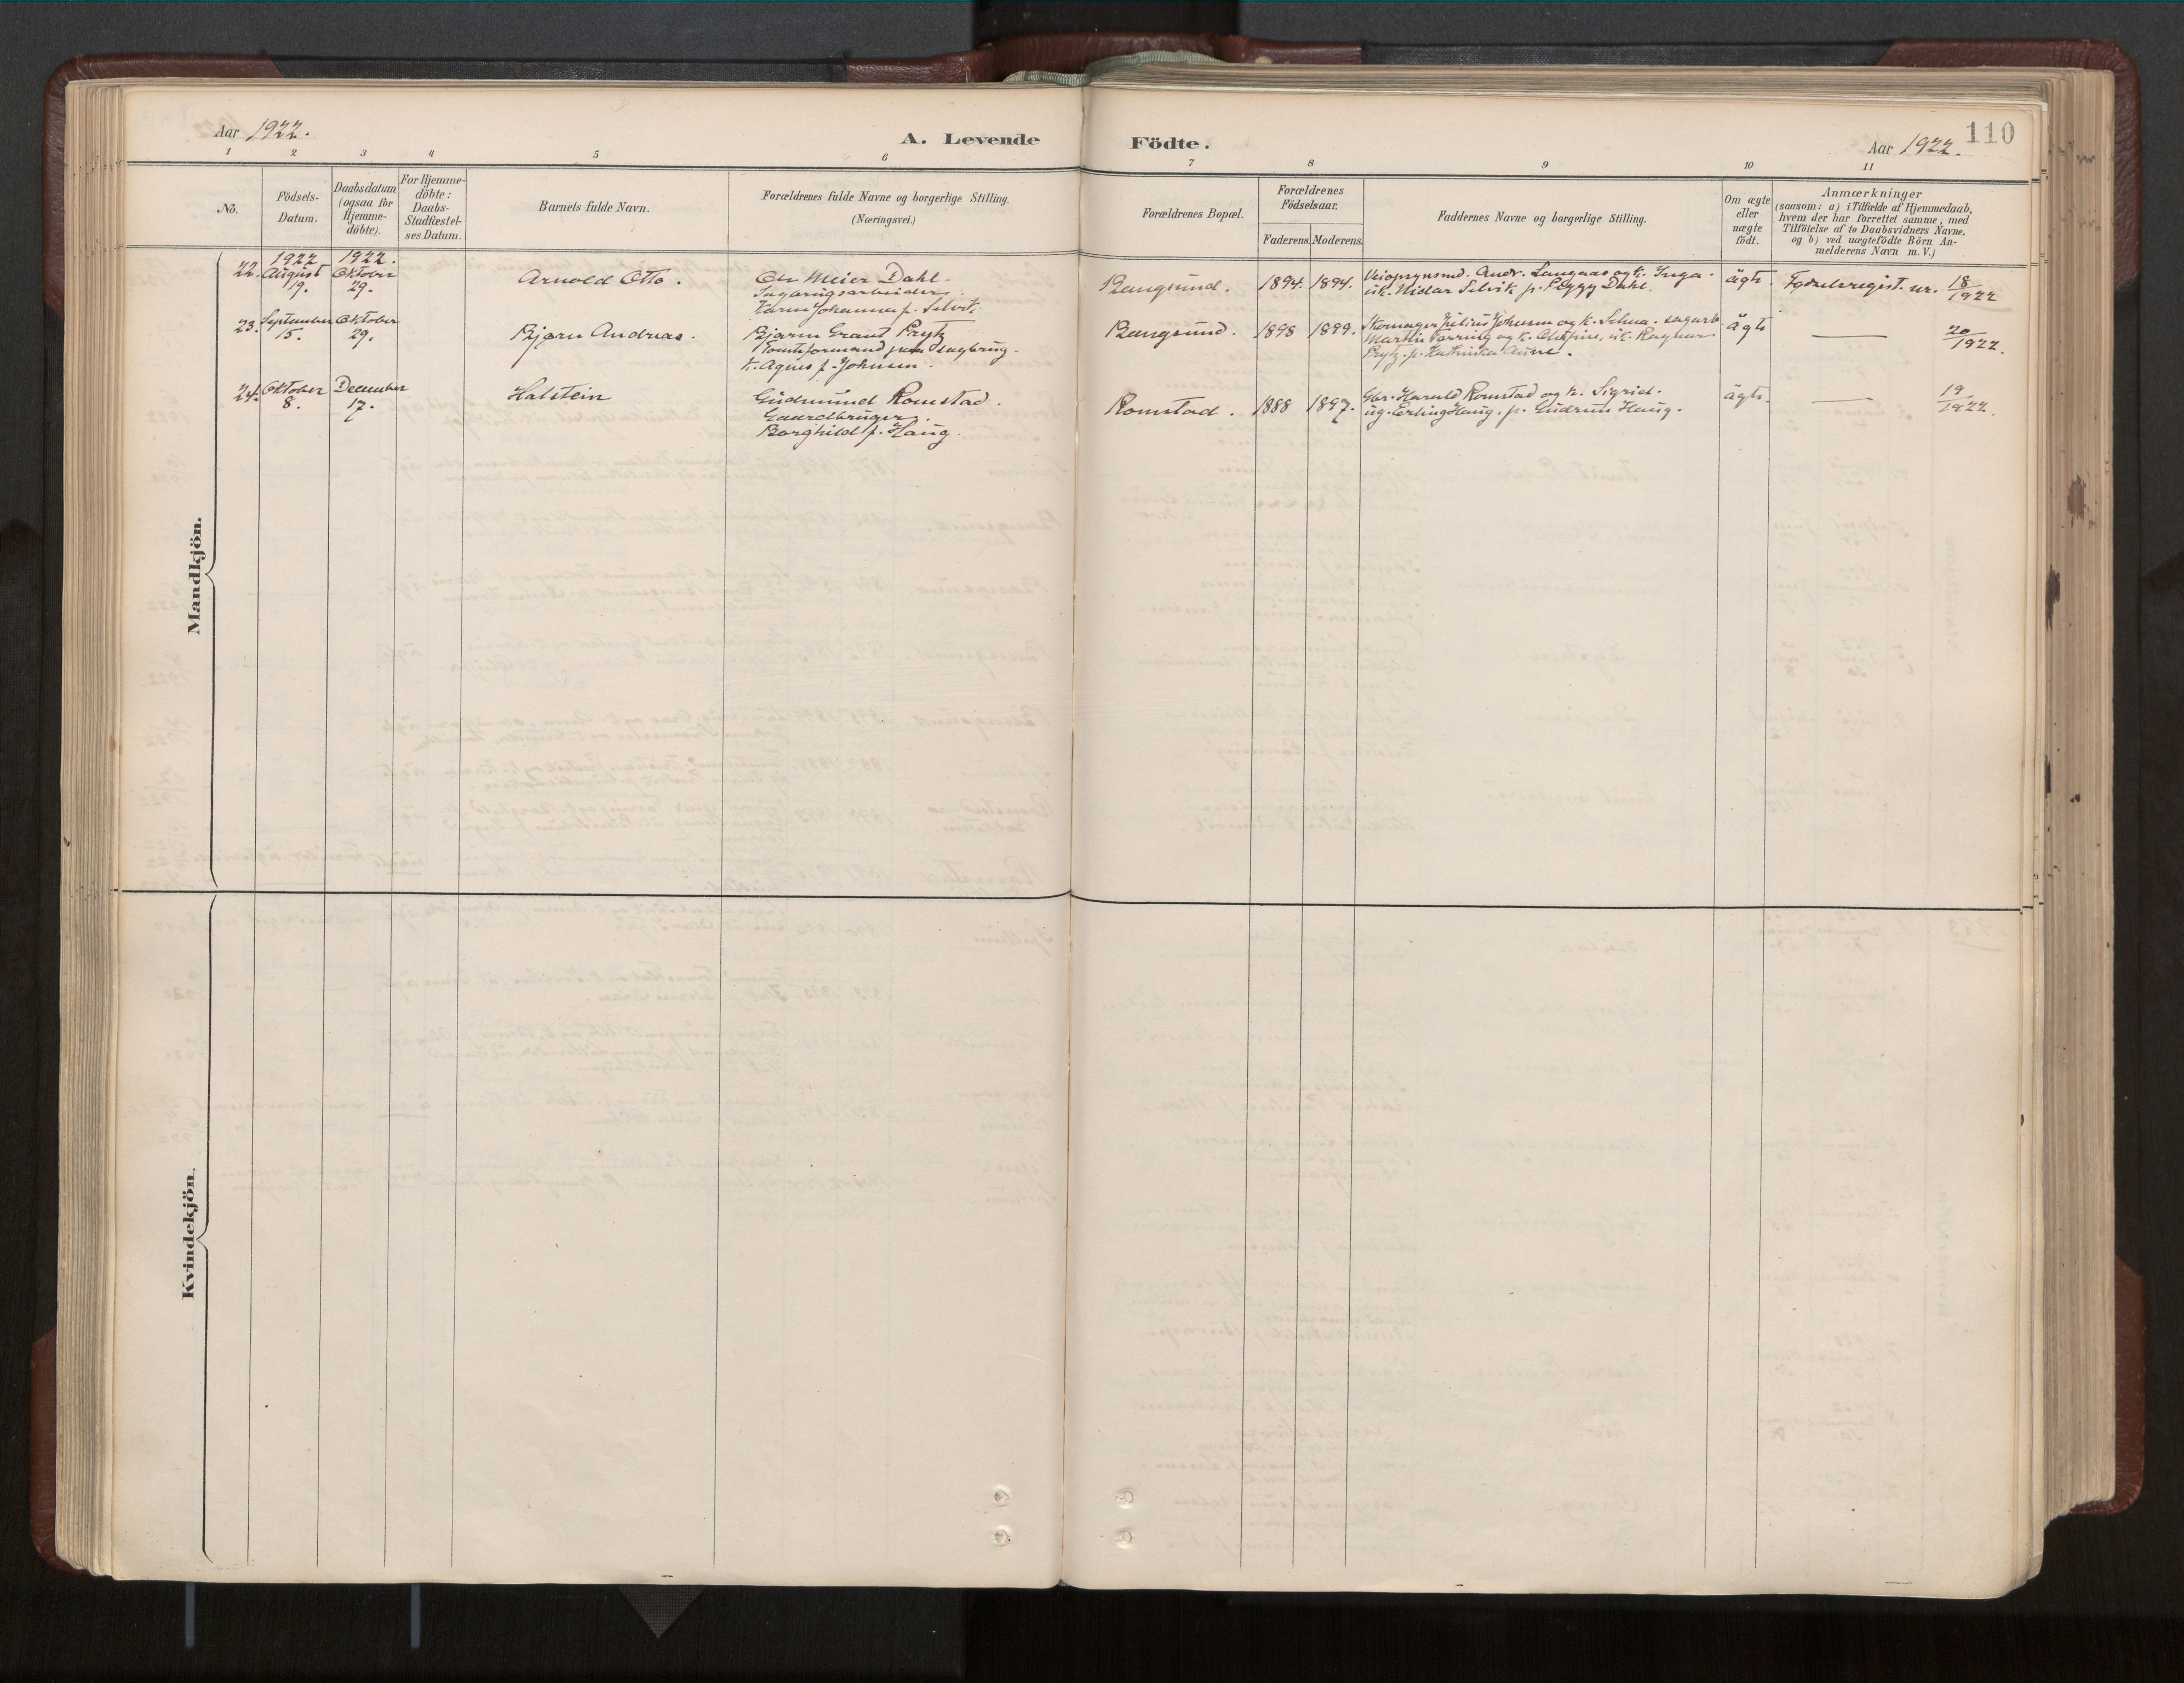 Aar 1922.
A. Levende Födte.
110
Aar 1922.
1 2 3 4 5 6 7 8 9 10 11
No.
Födsels-
Datum.
Daabsdatum
(ogsaa for
Hjemme-
döbte).
For Hjemme-
döbte:
Daabs-
Stadfæstel-
ses Datum.
Barnets fulde Navn.
Forældrenes fulde Navne og borgerlige Stilling.
(Næringsvei.)
Forældrenes Bopæl.
Forældrenes
Födselsaar.
Faderens. Moderens.
Faddernes Navne og borgerlige Stilling.
Om ægte
eller
uægte
födt.
Anmærkninger
(saasom: a) i Tilfælde af Hjemmedaab,
hvem der har forrettet samme, med
Tilföielse af to Daabsvidners Navne.
og b) ved uægtefödte Börn An-
melderens Navn m. V.)
Mandkjön.
22.
1922
August
19.
1922.
Oktober
29.
Arnold Otto.
Meier Dahl.
Sagbrugsarbeider.
Johanna f. Selvik.
Bangsund.
1894. 1894.
Andr. Langaas og k. Inga.
uk. Nidar Selvik p. Peggy Dahl.
ägte.
Fødselsregist. nr. 18/1922
23.
September
15.
Oktober
29.
Bjørn Andreas.
Bjarne Graut Prytz
Tomteformand sagbrug.
k. Agnes f. Johnsen.
Bangsund.
1898 1899.
Skomager Julius Johnsen og k. Selma. sagarb.
Martin Tørring og k. uk. Ragnar
Prytz. p. Aune.
ägte
— 20/1922.
24.
Oktober
8.
December
17.
Halstein
Gudmund Romstad.
Gaardbruger.
Borghild f. Haug.
Romstad.
1888 1897.
Gbr. Harald Romstad og k. Sigrid.
ug. Erling Haug. p. Gudrun Haug.
ägte.
— 19/1922.
Kvindekjön.